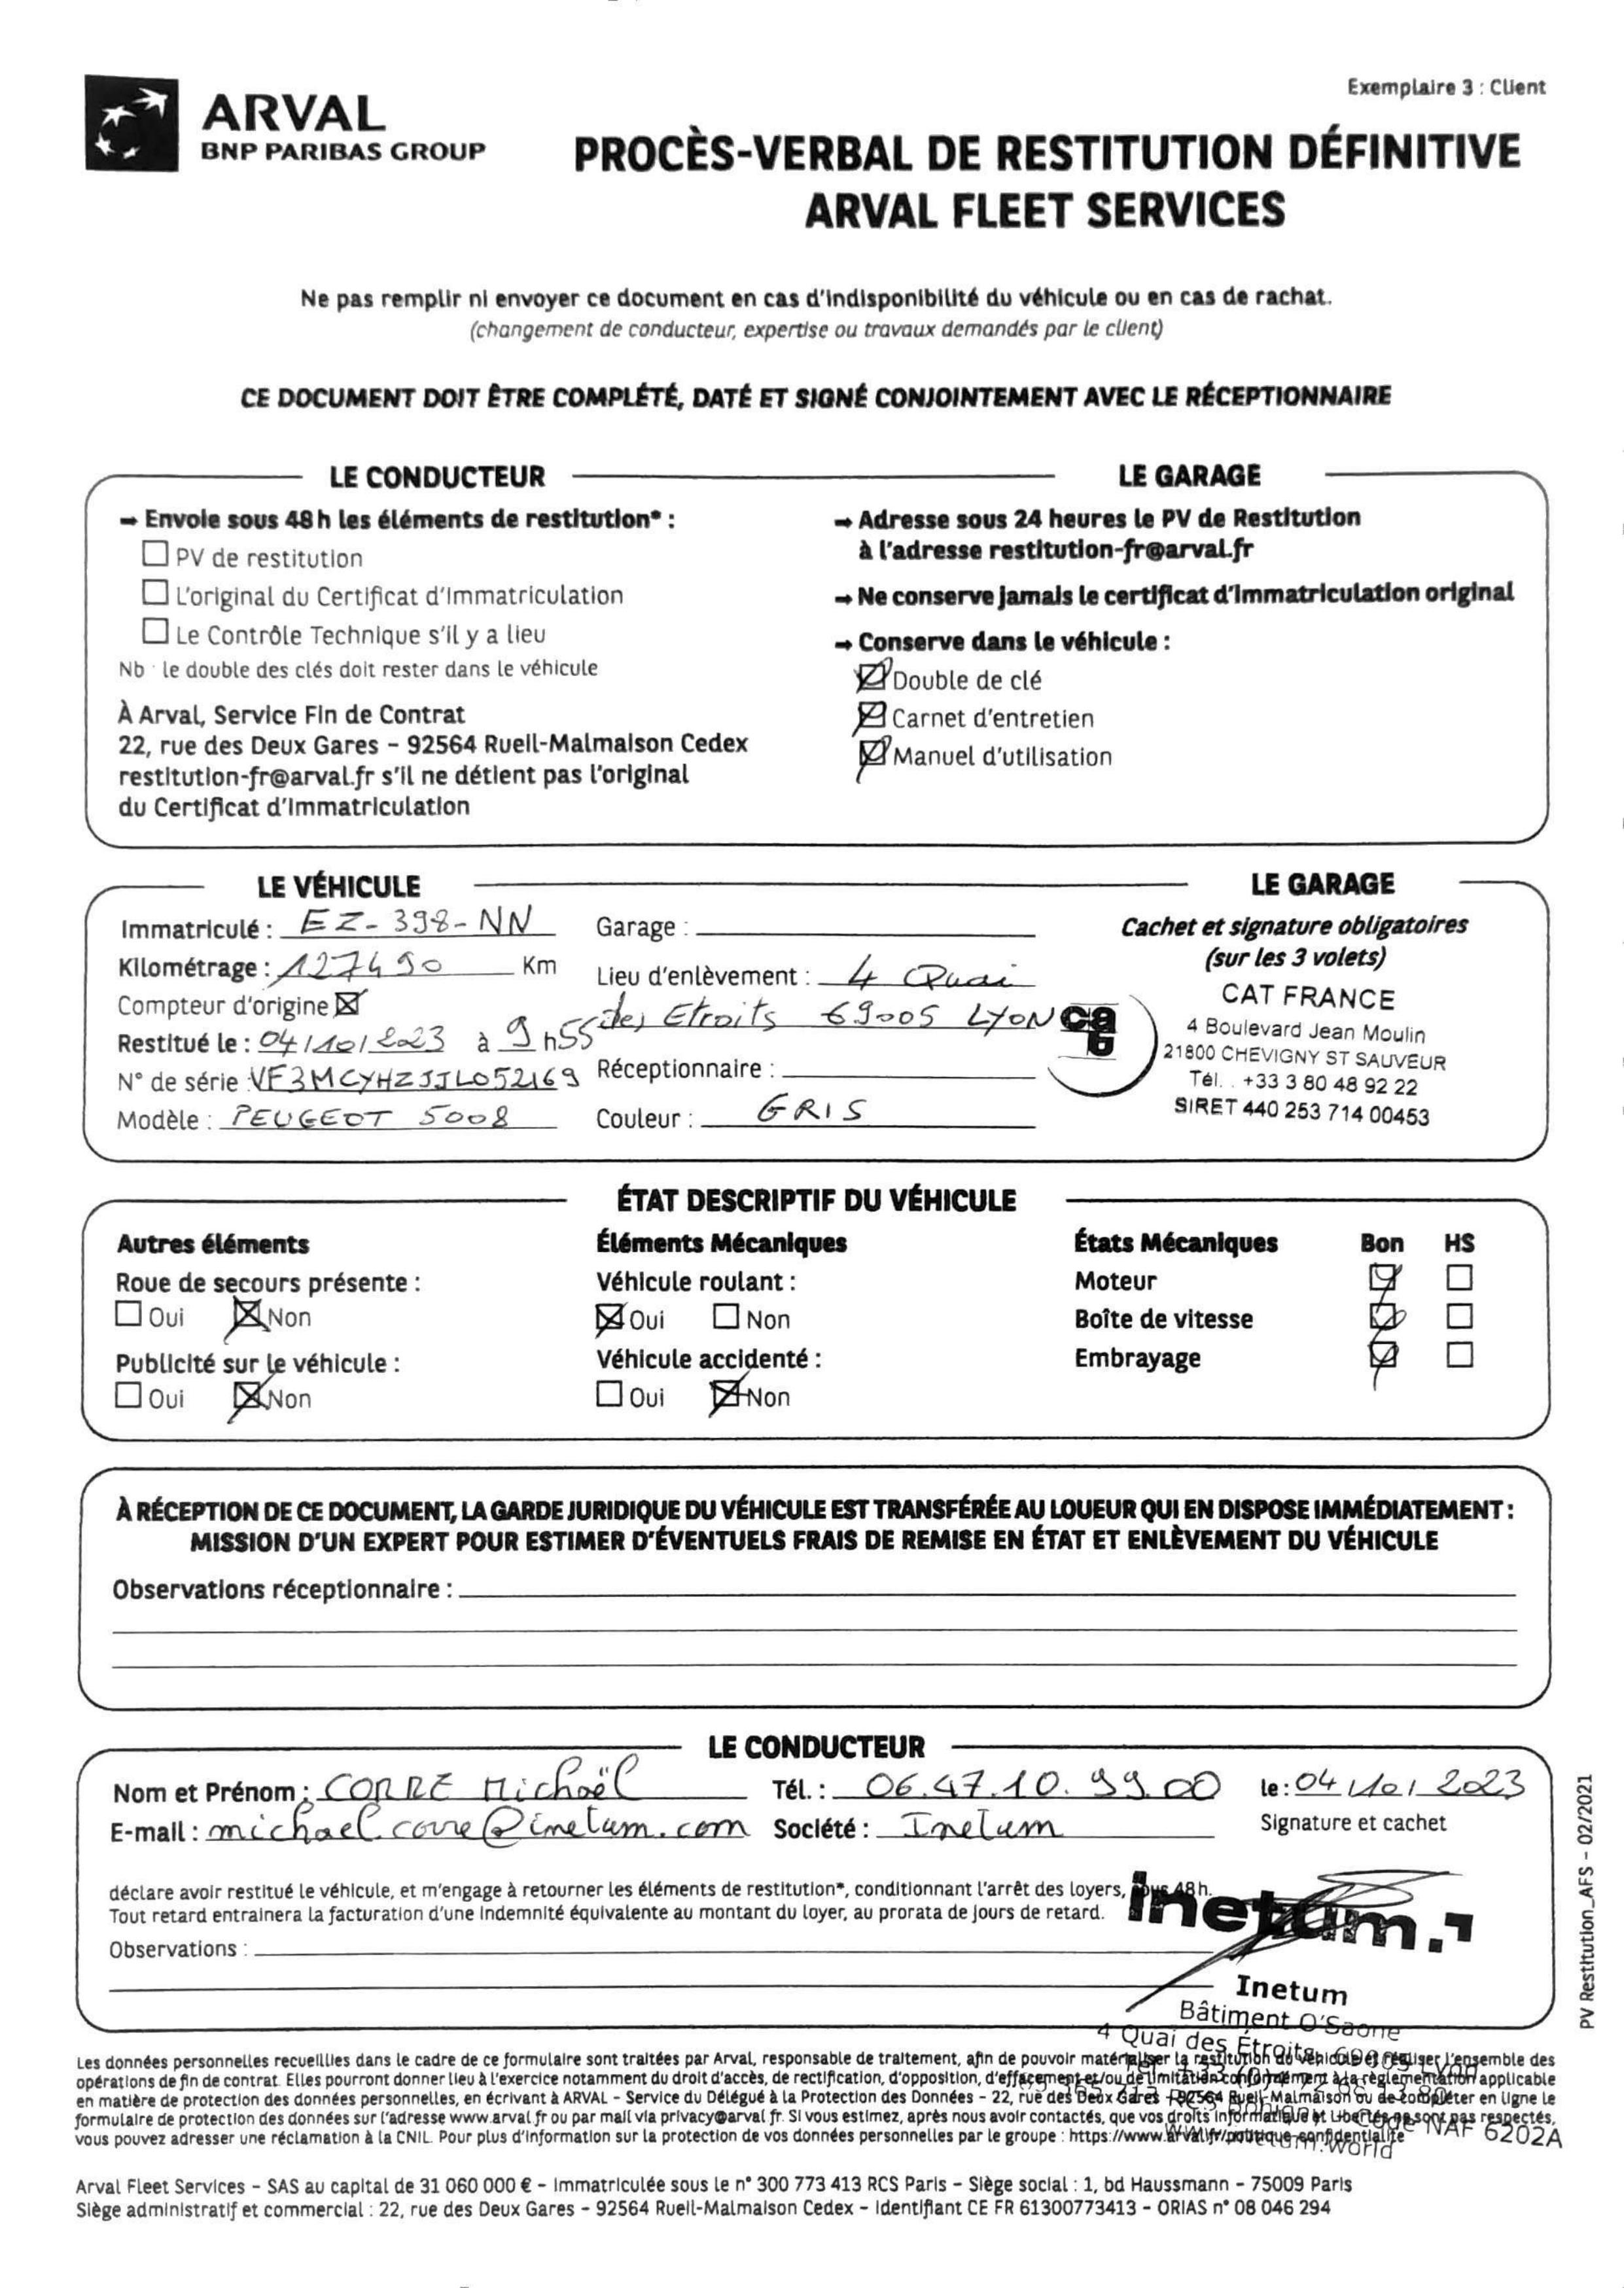 Exemplaire 3 : Client
ARVAL
BNP PARIBAS GROUP
PROCÈS-VERBAL DE RESTITUTION DÉFINITIVE
ARVAL FLEET SERVICES
Ne pas remplir ni envoyer ce document en cas d'indisponibilité du véhicule ou en cas de rachat.
(changement de conducteur, expertise ou travaux demandés par le client)
CE DOCUMENT DOIT ÊTRE COMPLÉTÉ, DATÉ ET SIGNÉ CONJOINTEMENT AVEC LE RÉCEPTIONNAIRE
LE CONDUCTEUR
→ Envoie sous 48 h les éléments de restitution* :
PV de restitution
L'original du Certificat d'Immatriculation
Le Contrôle Technique s'il y a lieu
Nb : le double des clés doit rester dans le véhicule
À Arval, Service Fin de Contrat
22, rue des Deux Gares – 92564 Rueil-Malmaison Cedex
restitution-fr@arval.fr s'il ne détient pas l'original
du Certificat d'Immatriculation
LE GARAGE
→ Adresse sous 24 heures le PV de Restitution
à l'adresse restitution-fr@arval.fr
→ Ne conserve jamais le certificat d'immatriculation original
→ Conserve dans le véhicule :
Double de clé
Carnet d'entretien
Manuel d'utilisation
LE VÉHICULE
Immatriculé : EZ-398-NN
Kilométrage : 127490 Km
Compteur d'origine
Restitué le : 04/10/2023 à 9 h55
N° de série : VF3MCYHZJJL052169
Modèle : PEUGEOT 5008
Garage :
Lieu d'enlèvement : 4 Quai
des Etroits 69005 LYON
Réceptionnaire :
Couleur : GRIS
LE GARAGE
Cachet et signature obligatoires
(sur les 3 volets)
CAT FRANCE
4 Boulevard Jean Moulin
21800 CHEVIGNY ST SAUVEUR
Tél. : +33 3 80 48 92 22
SIRET 440 253 714 00453
cat
ÉTAT DESCRIPTIF DU VÉHICULE
Autres éléments
Roue de secours présente :
Oui Non
Publicité sur le véhicule :
Oui Non
Éléments Mécaniques
Véhicule roulant :
Oui Non
Véhicule accidenté :
Oui Non
États Mécaniques Bon HS
Moteur
Boîte de vitesse
Embrayage
À RÉCEPTION DE CE DOCUMENT, LA GARDE JURIDIQUE DU VÉHICULE EST TRANSFÉRÉE AU LOUEUR QUI EN DISPOSE IMMÉDIATEMENT :
MISSION D'UN EXPERT POUR ESTIMER D'ÉVENTUELS FRAIS DE REMISE EN ÉTAT ET ENLÈVEMENT DU VÉHICULE
Observations réceptionnaire :
LE CONDUCTEUR
Nom et Prénom : CORRE Michaël Tél. : 06.47.10.99.00 le : 04/10/2023
E-mail : michael.corre@inetum.com Société : Inetum Signature et cachet
déclare avoir restitué le véhicule, et m'engage à retourner les éléments de restitution*, conditionnant l'arrêt des loyers, sous 48 h.
Tout retard entrainera la facturation d'une indemnité équivalente au montant du loyer, au prorata de jours de retard.
Observations :
inetum.
Inetum
Bâtiment O'Saône
4 Quai des Étroits, 69005 Lyon
Code NAF 6202A
PV Restitution_AFS – 02/2021
Les données personnelles recueillies dans le cadre de ce formulaire sont traitées par Arval, responsable de traitement, afin de pouvoir matérialiser la restitution du véhicule et réaliser l'ensemble des
opérations de fin de contrat. Elles pourront donner lieu à l'exercice notamment du droit d'accès, de rectification, d'opposition, d'effacement et/ou de limitation conformément à la règlementation applicable
en matière de protection des données personnelles, en écrivant à ARVAL – Service du Délégué à la Protection des Données – 22, rue des Deux Gares – 92564 Rueil-Malmaison ou de compléter en ligne le
formulaire de protection des données sur l'adresse www.arval.fr ou par mail via privacy@arval.fr. Si vous estimez, après nous avoir contactés, que vos droits Informatique et Libertés ne sont pas respectés,
vous pouvez adresser une réclamation à la CNIL. Pour plus d'information sur la protection de vos données personnelles par le groupe : https://www.arval.fr/politique-confidentialite
Arval Fleet Services – SAS au capital de 31 060 000 € – Immatriculée sous le n° 300 773 413 RCS Paris – Siège social : 1, bd Haussmann – 75009 Paris
Siège administratif et commercial : 22, rue des Deux Gares – 92564 Rueil-Malmaison Cedex – Identifiant CE FR 61300773413 – ORIAS n° 08 046 294